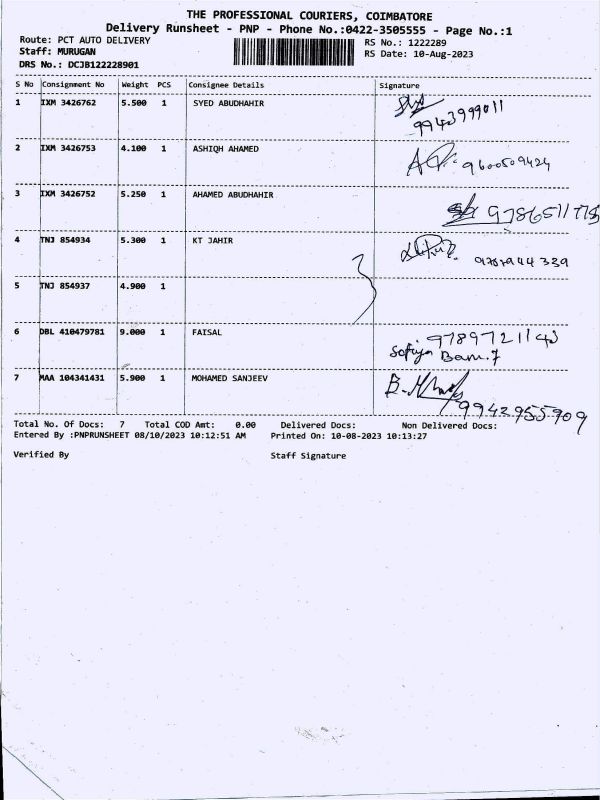 THE PROFESSIONAL COURIERS, COIMBATORE
Delivery Runsheet - PNP - Phone No.:0422-3505555 - Page No.:1
Route: PCT AUTO DELIVERY RS No.: 1222289
Staff: MURUGAN RS Date: 10-Aug-2023
DRS No.: DCJB122228901
S No Consignment No Weight PCS Consignee Details Signature
1 IXM 3426762 5.500 1 SYED ABUDHAHIR
9943999011
2 IXM 3426753 4.100 1 ASHIQH AHAMED
9600509424
3 IXM 3426752 5.250 1 AHAMED ABUDHAHIR
4 TNJ 854934 5.300 1 KT JAHIR
9787944339
5 TNJ 854937 4.900 1
6 DBL 410479781 9.000 1 FAISAL
7 MAA 104341431 5.900 1 MOHAMED SANJEEV
9942955909
Total No. Of Docs: 7 Total COD Amt: 0.00 Delivered Docs: Non Delivered Docs:
Entered By :PNPRUNSHEET 08/10/2023 10:12:51 AM Printed On: 10-08-2023 10:13:27
Verified By Staff Signature